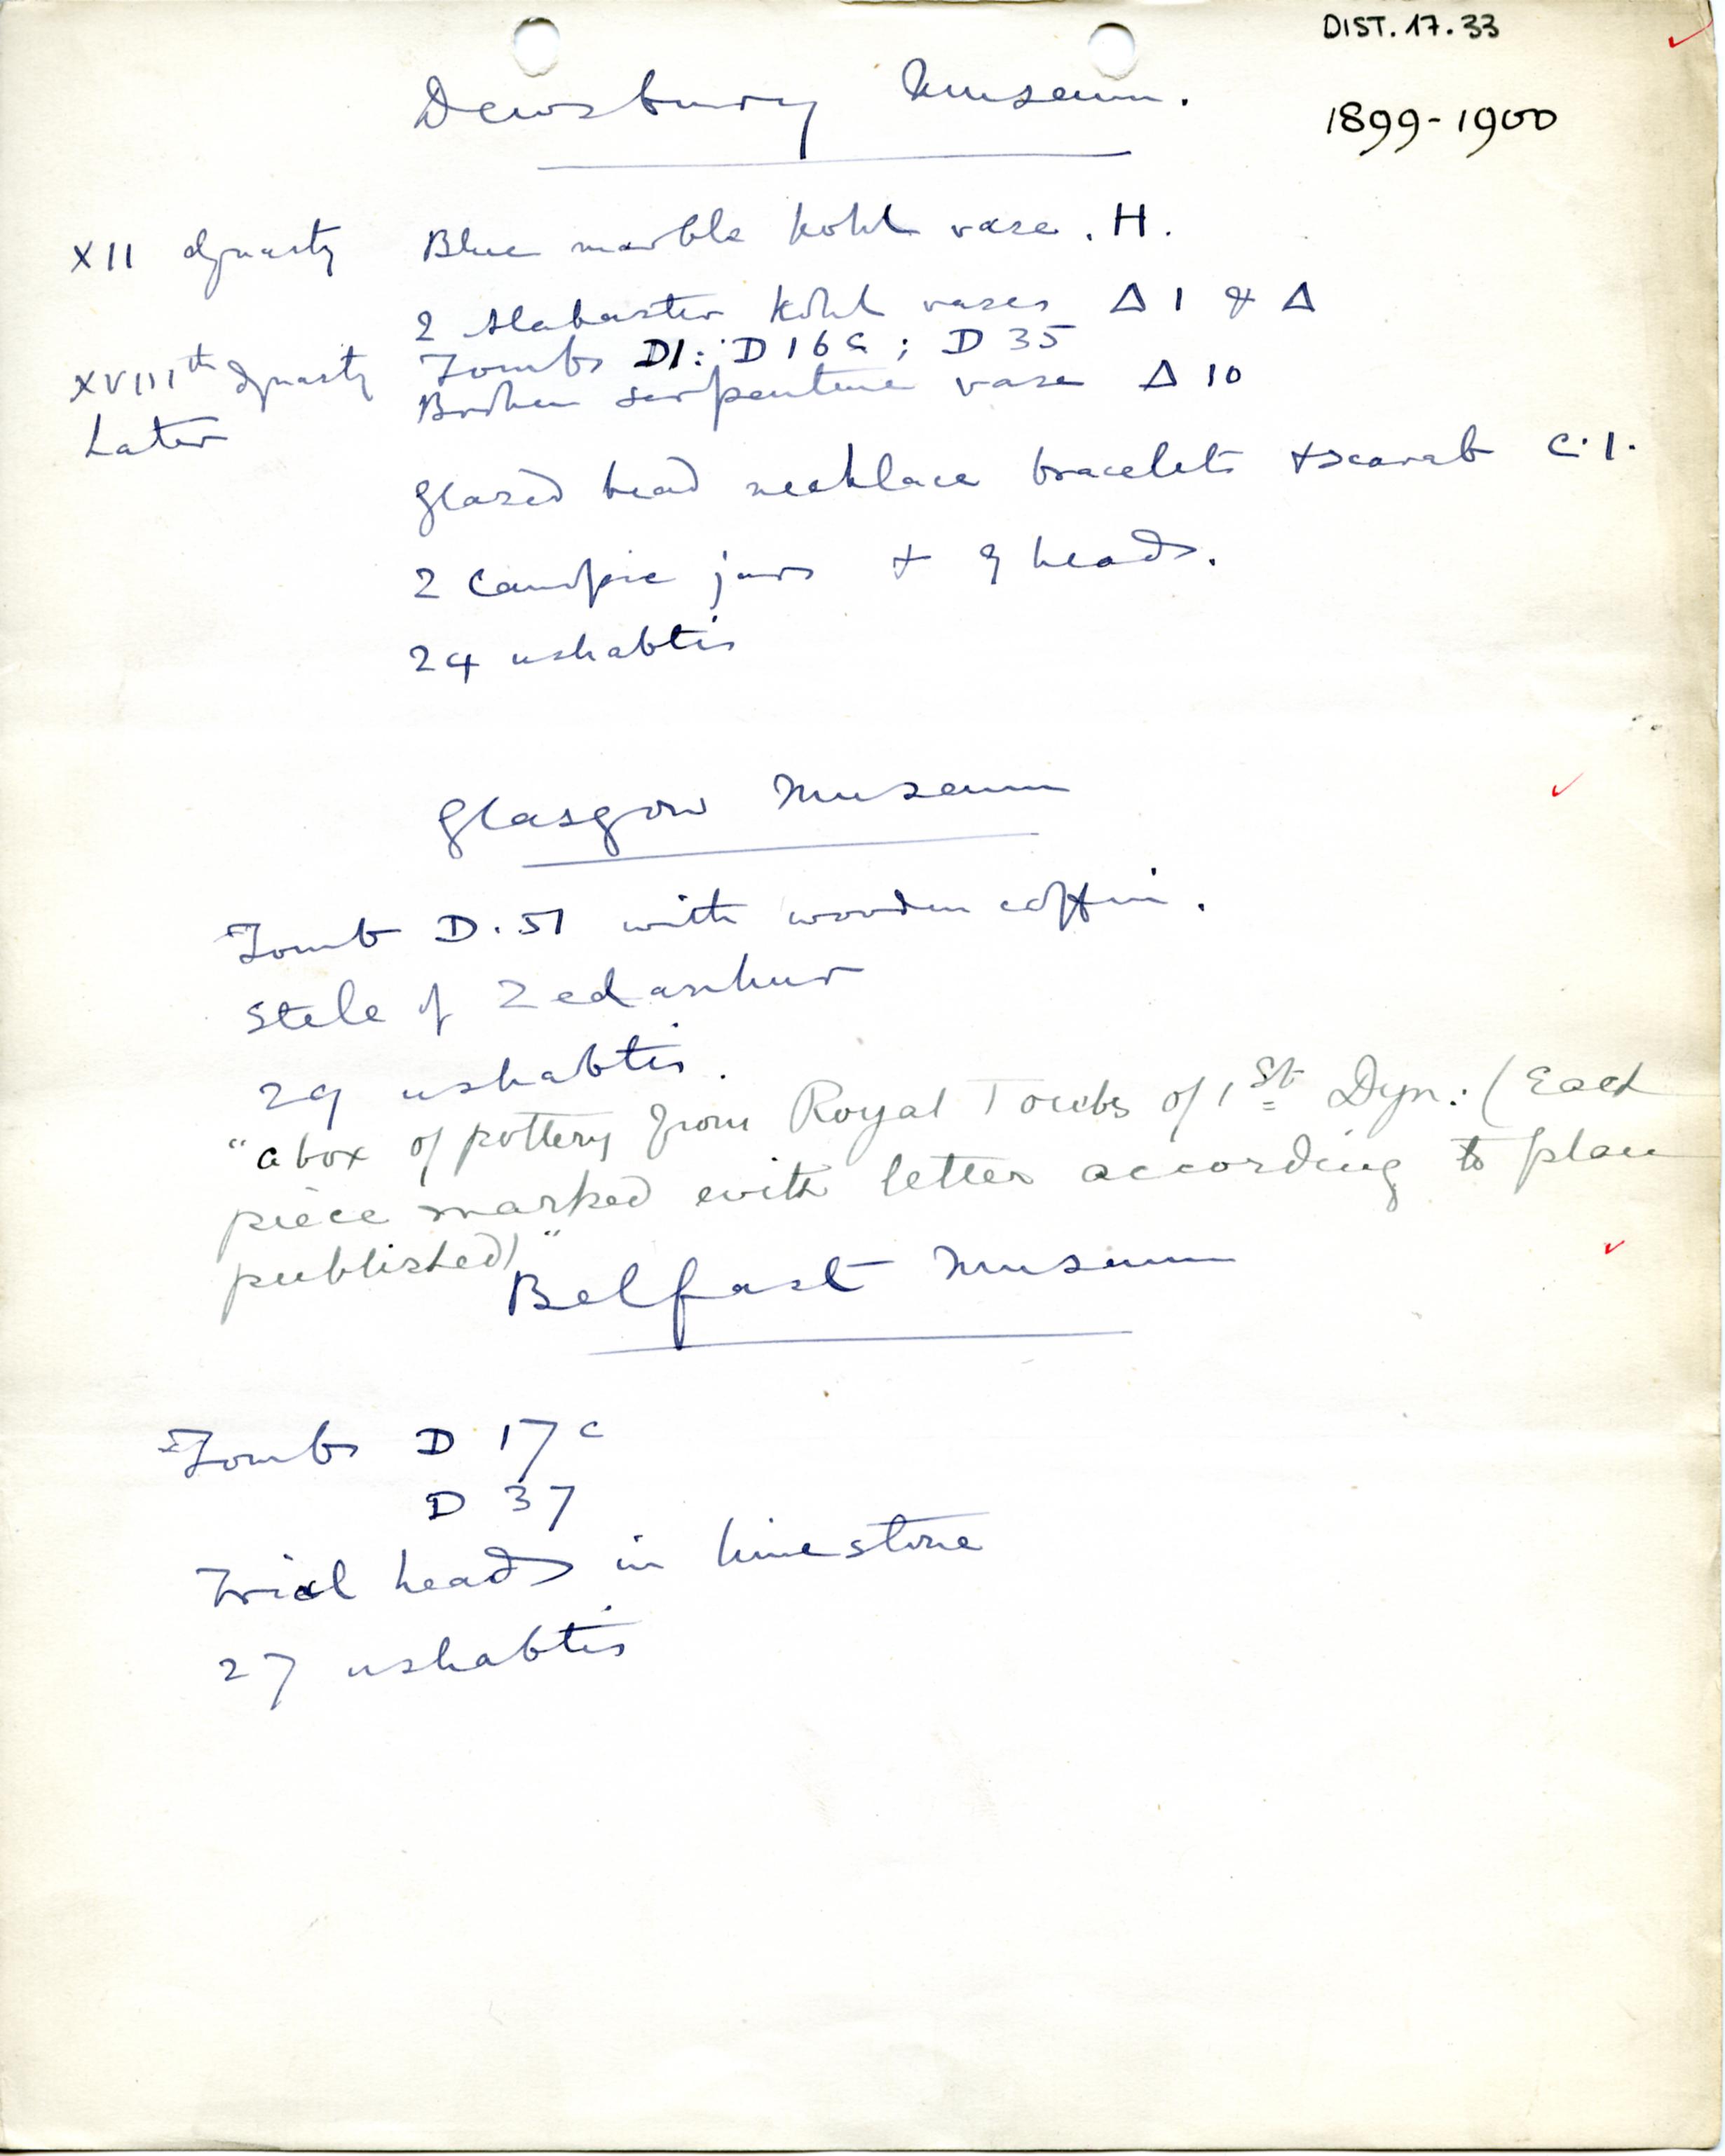 DIST. 17.33
1899-1900
Dewsbury Museum.
XII dynasty Blue marble kohl vase . H.
2 Alabaster kohl vases Δ 1 & Δ
XVIIIth dynasty Tombs D1: D 16 ; D 35
Later Broken serpentine vase Δ 10
Glazed bead necklace bracelets + scarab C.1.
2 Canopic jars + heads.
24 ushabtis
Glasgow Museum
Tomb D.51 with wooden coffin.
Stele of Zedanhur
29 ushabtis.
"a box of pottery from Royal Tombs of 1st Dyn: (Each
piece marked with letter according to plan
published)"
Belfast Museum
Tombs D 17 c
D 37
Trial heads in limestone
27 ushabtis